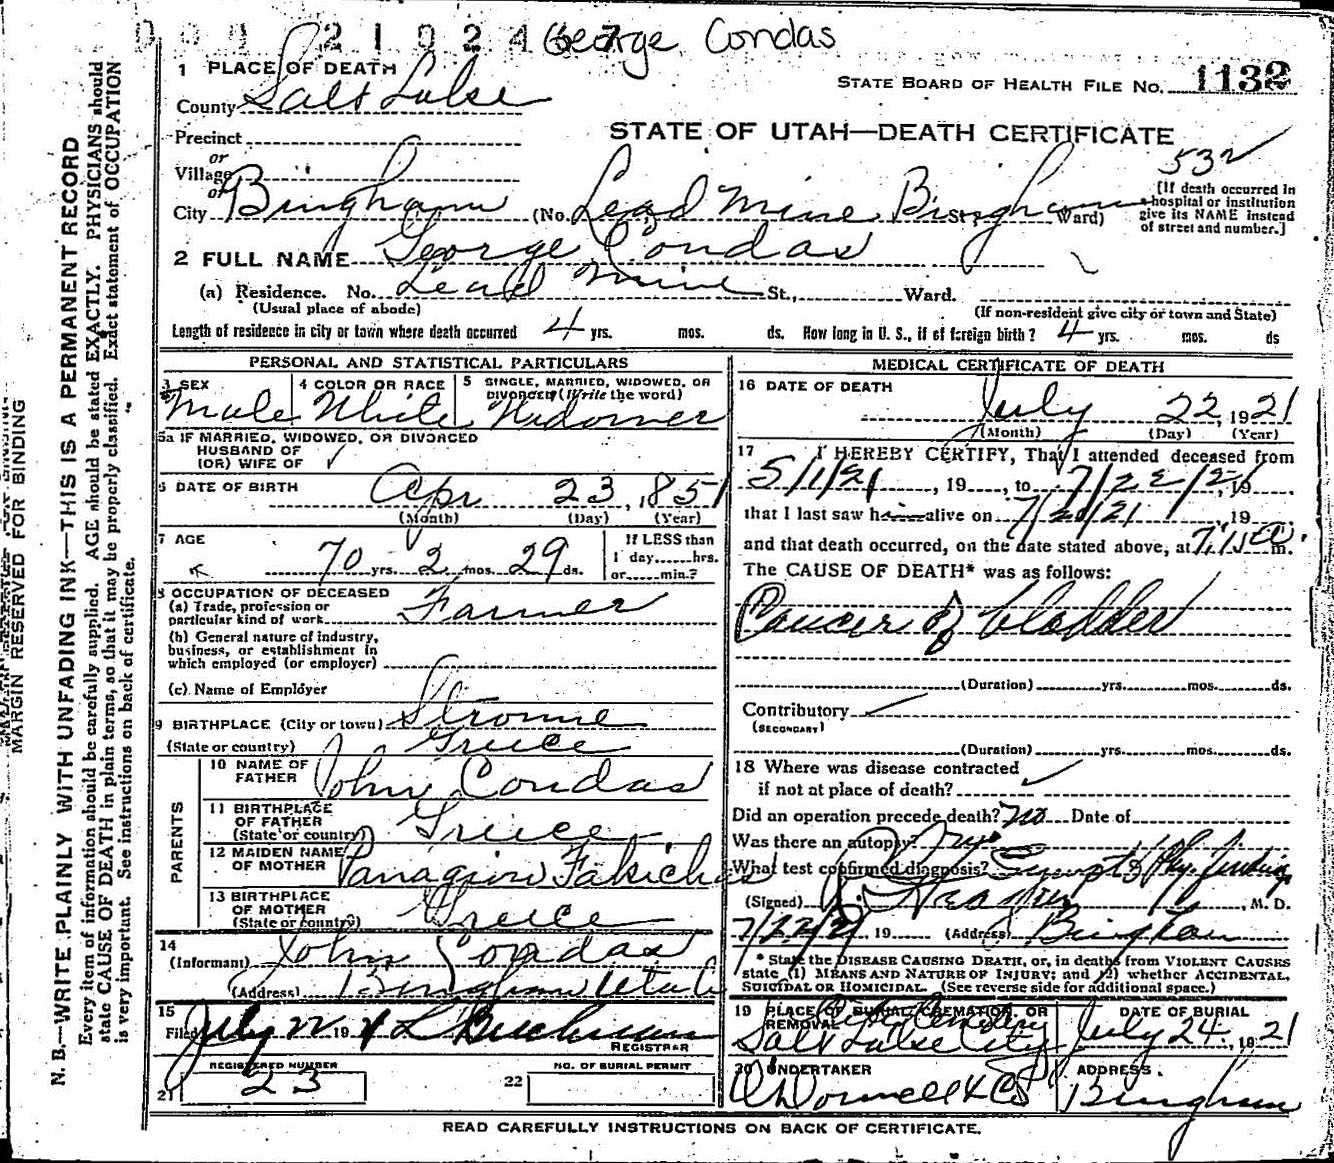 21024 George Condas
1 PLACE OF DEATH
STATE BOARD OF HEALTH FILE No. 1132
County Salt Lake
Precinct
STATE OF UTAH—DEATH CERTIFICATE
or
Village
532
or
City Bingham (No. Lead Mine Bingham St., Ward)
[If death occurred in
a hospital or institution
give its NAME instead
of street and number.]
2 FULL NAME George Condas
(a) Residence. No. Lead Mine St., Ward.
(Usual place of abode) (If non-resident give city or town and State)
Length of residence in city or town where death occurred 4 yrs. mos. ds. How long in U. S., if of foreign birth? 4 yrs. mos. ds
PERSONAL AND STATISTICAL PARTICULARS
3 SEX Male
4 COLOR OR RACE White
5 SINGLE, MARRIED, WIDOWED, OR
DIVORCED (Write the word)
Widower
5a IF MARRIED, WIDOWED, OR DIVORCED
HUSBAND OF
(OR) WIFE OF
6 DATE OF BIRTH Apr 23, 1851
(Month) (Day) (Year)
7 AGE 70 yrs. 2 mos. 29 ds.
If LESS than
1 day......hrs.
or......min.?
8 OCCUPATION OF DECEASED
(a) Trade, profession or
particular kind of work Farmer
(b) General nature of industry,
business, or establishment in
which employed (or employer)
(c) Name of Employer
9 BIRTHPLACE (City or town) Strome
(State or country) Greece
PARENTS
10 NAME OF
FATHER John Condas
11 BIRTHPLACE
OF FATHER
(State or country) Greece
12 MAIDEN NAME
OF MOTHER
13 BIRTHPLACE
OF MOTHER
(State or country) Greece
14
(Informant) John Condas
(Address) Bingham Utah
15
Filed July 22 19
REGISTRAR
REGISTERED NUMBER
21 23
22 NO. OF BURIAL PERMIT
MEDICAL CERTIFICATE OF DEATH
16 DATE OF DEATH
July 22, 1921
(Month) (Day) (Year)
17 I HEREBY CERTIFY, That I attended deceased from
5/1/21, 19 , to 7/22/21 19
that I last saw him alive on 7/20/21, 19
and that death occurred, on the date stated above, at 7,15 a m.
The CAUSE OF DEATH* was as follows:
Cancer of bladder
(Duration) yrs. mos. ds.
Contributory
(SECONDARY)
(Duration) yrs. mos. ds.
18 Where was disease contracted
if not at place of death?
Did an operation precede death? no Date of
Was there an autopsy?
What test confirmed diagnosis? Sympt & Phy. findings
(Signed) , M. D.
7/22/21 19 (Address) Bingham
* State the DISEASE CAUSING DEATH, or, in deaths from VIOLENT CAUSES
state (1) MEANS AND NATURE OF INJURY; and (2) whether ACCIDENTAL,
SUICIDAL OR HOMICIDAL. (See reverse side for additional space.)
19 PLACE OF BURIAL, CREMATION, OR
REMOVAL City Cemetery
Salt Lake City
DATE OF BURIAL
July 24, 1921
20 UNDERTAKER
O'Donnell & Co
ADDRESS
Bingham
READ CAREFULLY INSTRUCTIONS ON BACK OF CERTIFICATE.
MARGIN RESERVED FOR BINDING
N. B.—WRITE PLAINLY WITH UNFADING INK—THIS IS A PERMANENT RECORD
Every item of information should be carefully supplied. AGE should be stated EXACTLY. PHYSICIANS should
state CAUSE OF DEATH in plain terms, so that it may be properly classified. Exact statement of OCCUPATION
is very important. See instructions on back of certificate.